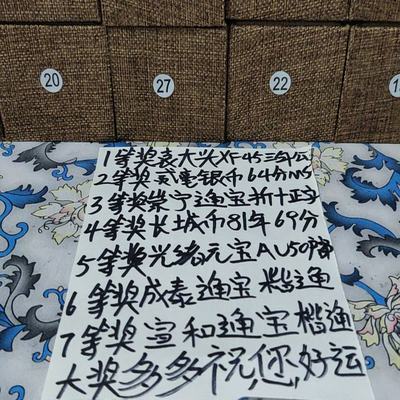 20
27
22
1等奖袁大头XF45三年公
2等奖贰毫银币64分MS
3等奖崇宁通宝折十正字
4等奖长城币81年69分
5等奖光绪元宝AU50
6等奖咸泰通宝楷通
7等奖宣和通宝楷通
大奖多多祝,您,好运